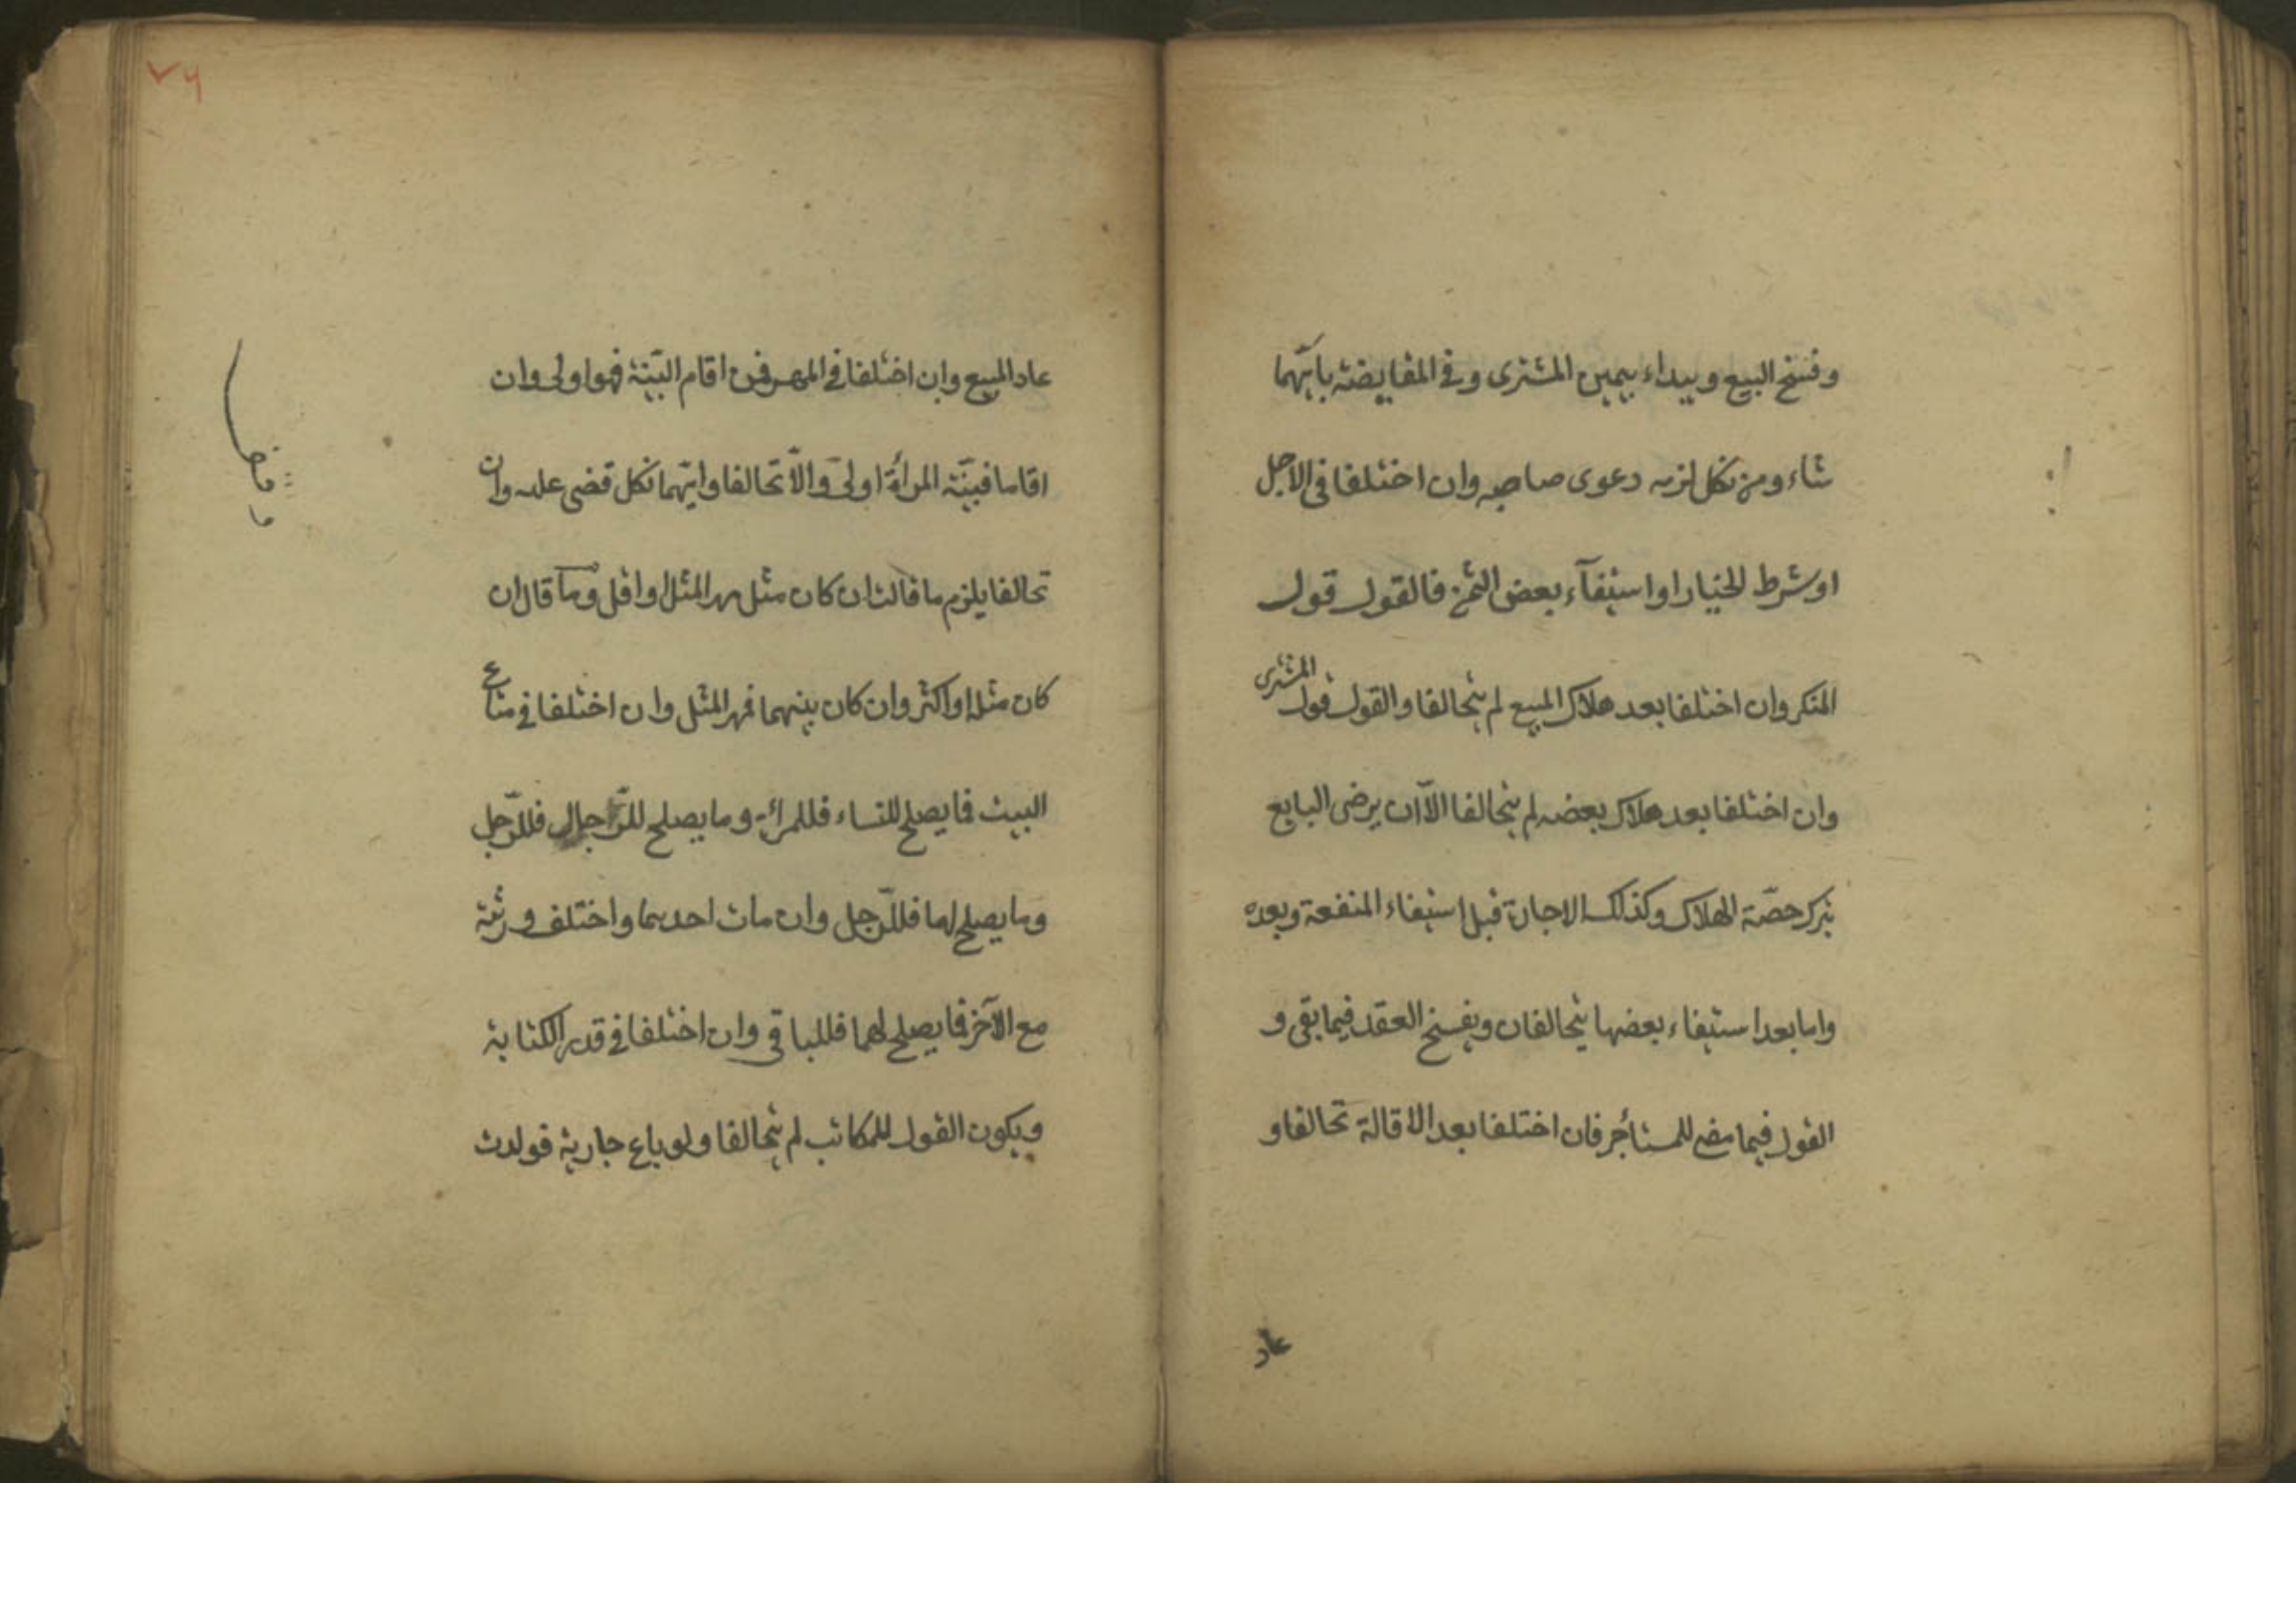 وفسخ البيع ويبداء بيمين المشترى وفى المقايضة بايّهما
شاء ومن نكل لزمه دعوى صاحبه وان اختلفا فى الاجل
او شرط الخيار او استيفآء بعض الثمن فالقول قول
المنكر وان اختلفا بعد هلاك المبيع لم يتحالفا والقول قول المشترى
وان اختلفا بعد هلاك بعضه لم يتحالفا الاّ ان يرضى البايع
بترك حصّة الهلاك وكذلك الاجارة قبل استيفاء المنفعة وبعده
واما بعد استيفاء بعضها يتحالفان ويفسخ العقد فيما بقى و
القول فيما مضى للمستأجر فان اختلفا بعد الاقالة تحالفا و
عاد
٧٦
عاد المبيع وان اختلفا فى المهر فمن اقام البيّنة فهو اولى وان
اقاما فبيّنة المرأة اولى والاّ تحالفا وايّهما نكل قضى عليه وان
تحالفا يلزم ما قالت ان كان مثل مهر المثل او اقل وما قال ان
كان مثله او اكثر وان كان بينهما فمهر المثل وان اختلفا فى متاع
البيت فما يصلح للنساء فللمرائة وما يصلح للرّجال فللرّجل
وما يصلح لهما فللرّجل وان مات احدهما واختلف ورثته
مع الآخر فما يصلح لهما فللباقى وان اختلفا فى قدر الكتابة
ويكون القول للمكاتب لم يتحالفا ولو باع جارية فولدت